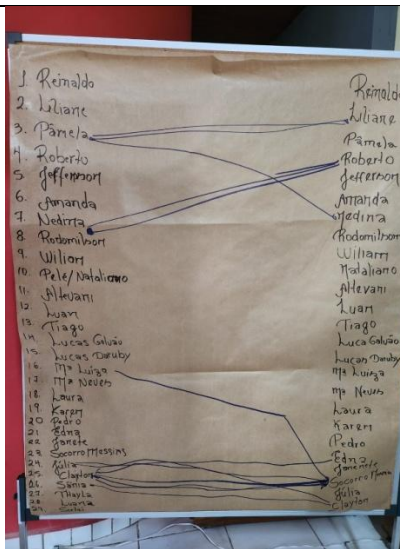 1. Reinaldo
2. Liliane
3. Pâmela
4. Roberto
5 Jefferson
6. Amanda
7. Nedina
8. Rodomilson
9. Wiliam
10. Pelé/Nataliano
11. Altevani
12. Luan
13. Tiago
14. Lucas Galvão
15. Lucas Daruby
16. Mª Luiza
17. Mª Neves
18. Laura
19. Karen
20 Pedro
21 Edna
22 Janete
23 Socorro Messias
24. Júlia
25. Clayton
26. Sônia
27. Thayla
28. Luana
29.
Reinaldo
Liliane
Pâmela
Roberto
Jefferson
Amanda
Nedina
Rodomilson
Wiliam
Nataliano
Altevani
Luan
Tiago
Luca Galvão
Lucas Daruby
Mª Luiza
Mª Neves
Laura
Karen
Pedro
Edna
Socorro
Júlia
Clayton